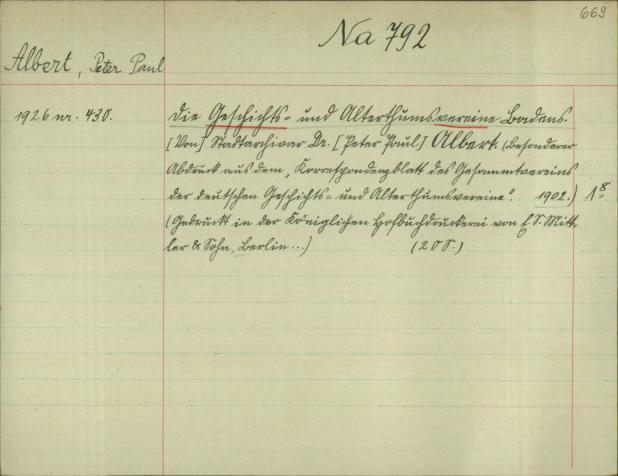 669
Na 792
Albert, Peter Paul
1926 nr. 430.
Die Geschichts- und Alterthumsvereine Badens.
[Von] Stadtarchivar Dr. [Peter Paul] Albert. (Besonderer
Abdruck aus dem „Korrespondenzblatt des Gesammtvereins
der deutschen Geschichts- und Alterthumsvereine“. 1902.) 1 8°
(Gedruckt in der Königlichen Hofbuchdruckerei von E. S. Mitt-
ler & Sohn, Berlin...) (20 S.)